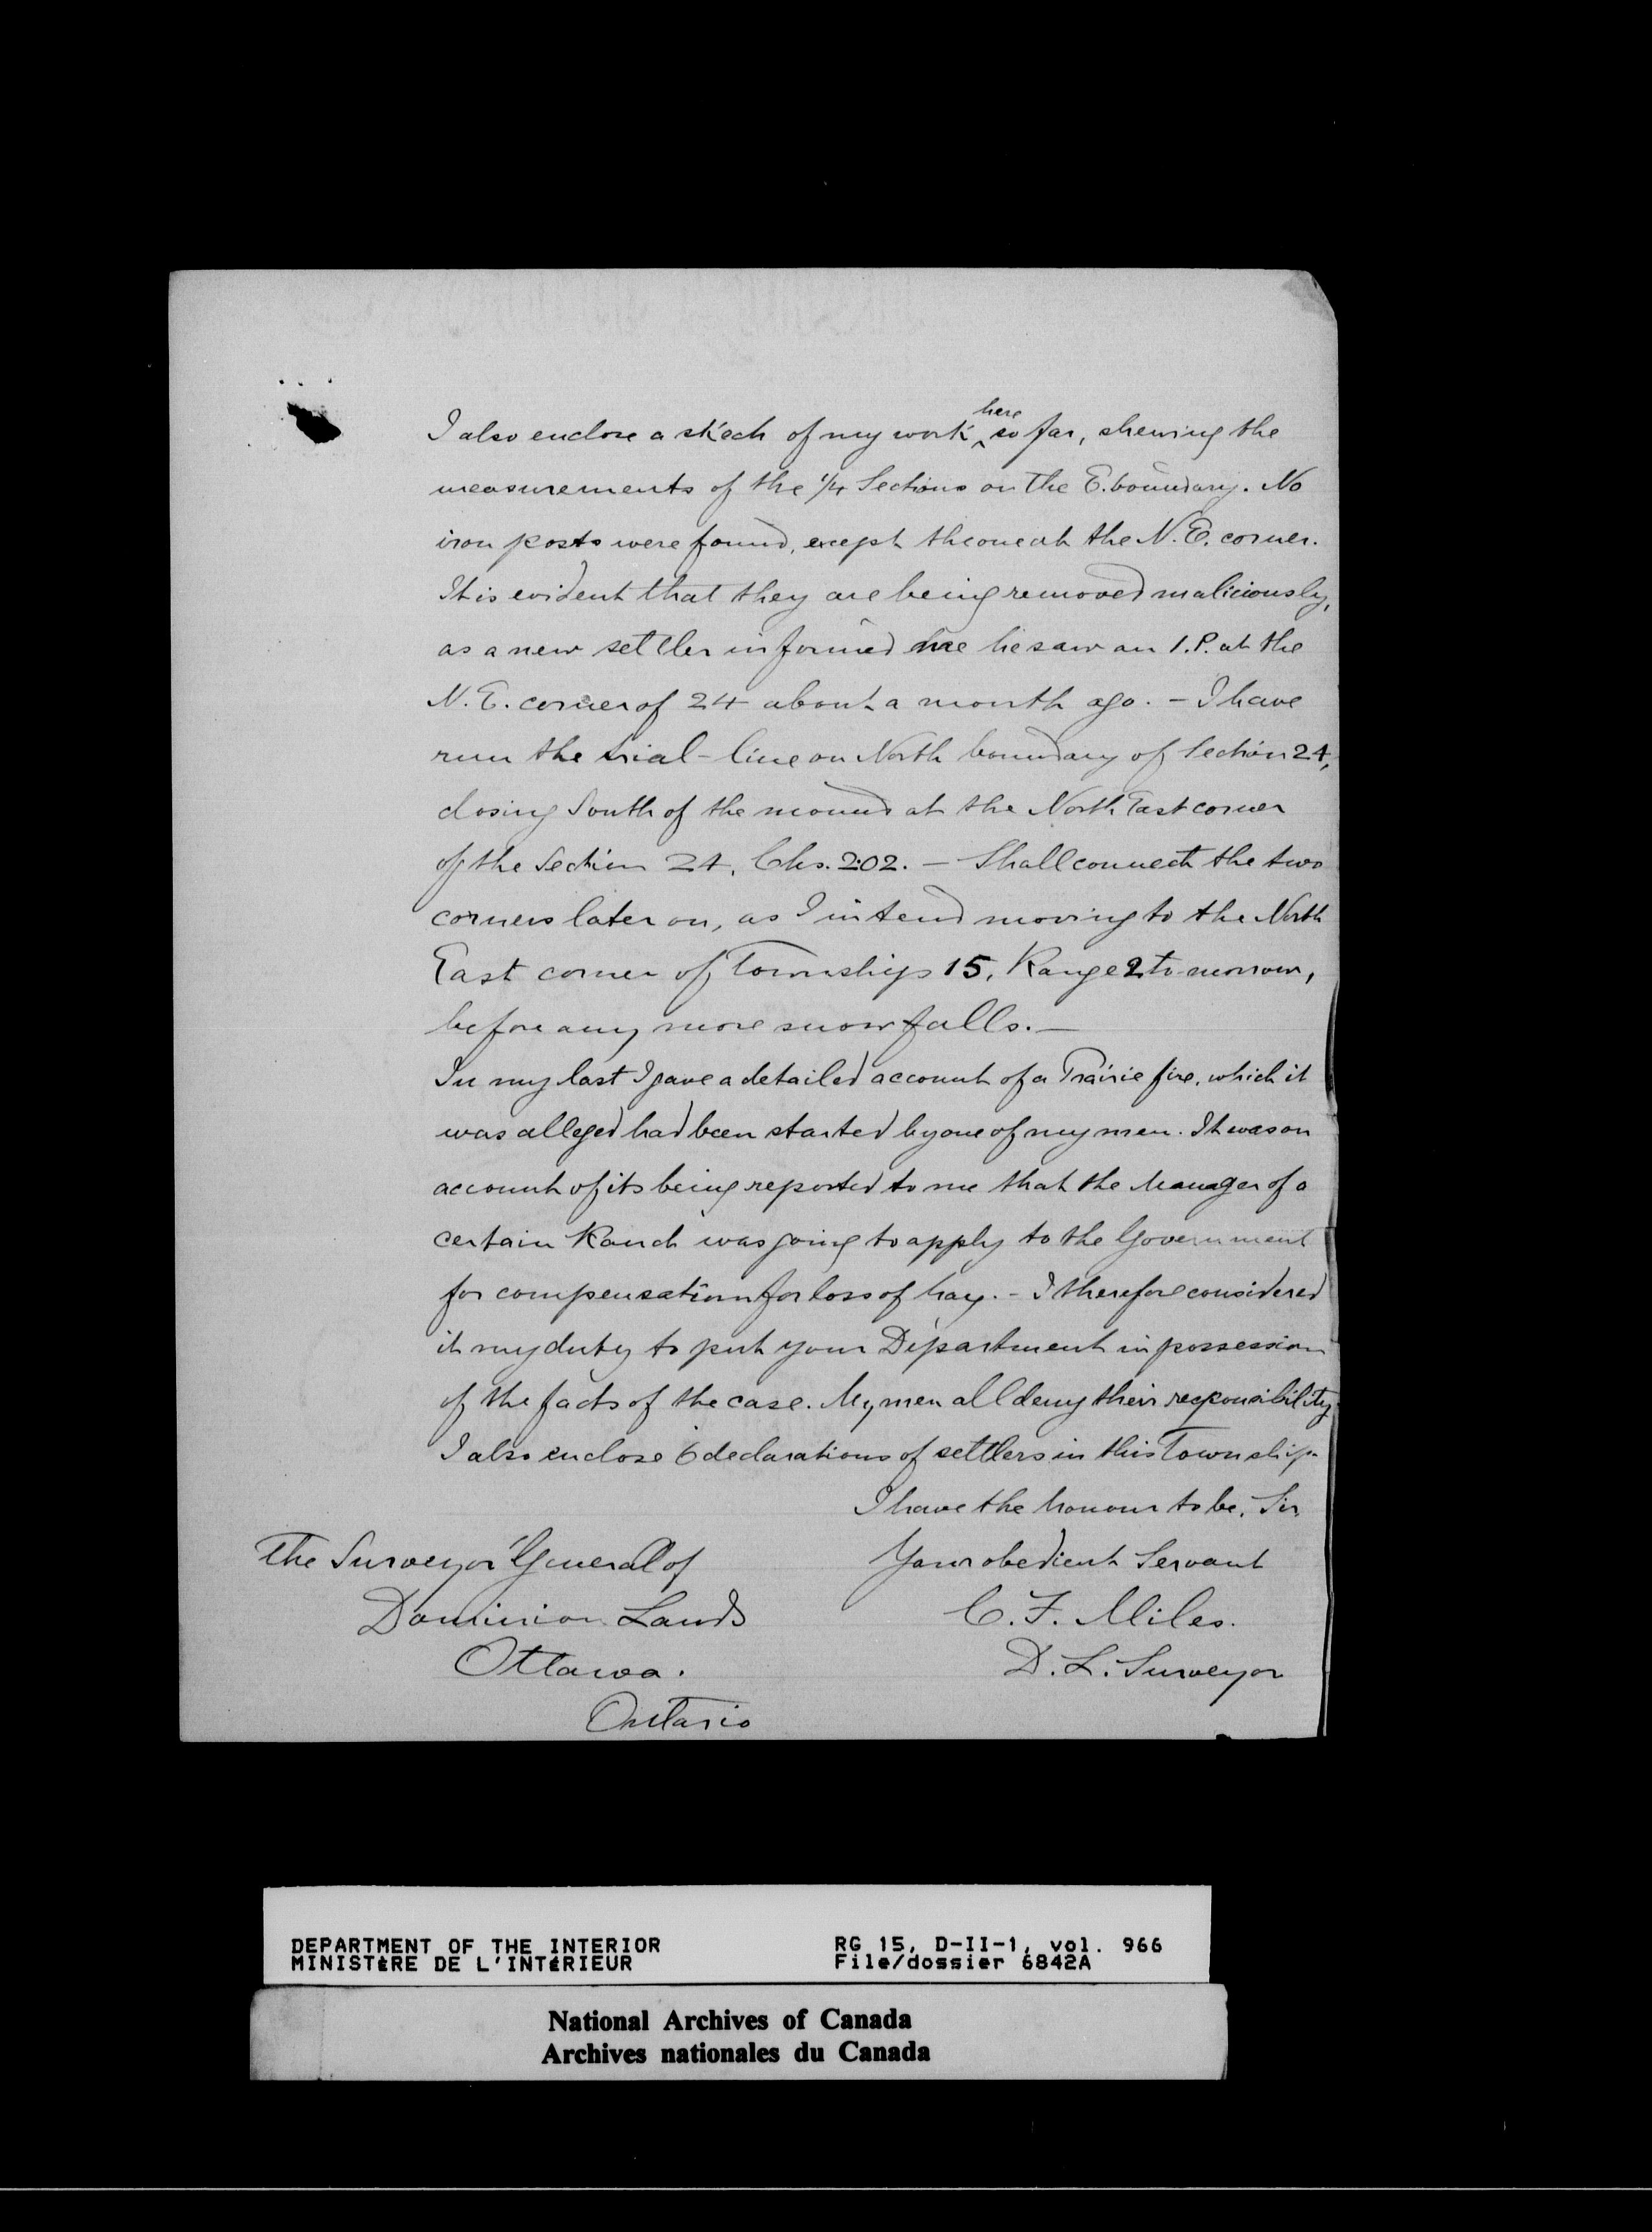 I also enclose a skech of my work here so far, shewing the
measurements of the 1/4 Sections on the E. boundary. No
iron posts were found, except the one at the N.E. corner.
It is evident that they are being removed maliciously,
as a new settler informed me he saw an I.P. at the
N.E. corner of 24 about a month ago. - I have
run the trial-line on North boundary of Section 24,
closing South of the mound at the North East corner
of the Section 24, Chs. 2.02. — Shall connect the two
corners later on, as I intend moving to the North
East corner of Township 15, Range 2 to-morrow,
before any more snow falls. —
In my last I gave a detailed account of a Prairie fire, which it
was alleged had been started by one of my men. It was on
account of its being reported to me that the Manager of a
certain Ranch was going to apply to the Government
for compensation for loss of hay. - I therefore considered
it my duty to put your Department in possession
of the facts of the case. My men all deny their responsibility
I also enclose 6 declarations of settlers in this Township.
I have the honour to be, Sir,
Your obedient Servant
C. F. Miles.
D. L. Surveyor
The Surveyor General of
Dominion Lands
Ottawa.
Ontario
DEPARTMENT OF THE INTERIOR
MINISTÈRE DE L'INTÉRIEUR
RG 15, D-II-1, vol. 966
File/dossier 6842A
National Archives of Canada
Archives nationales du Canada